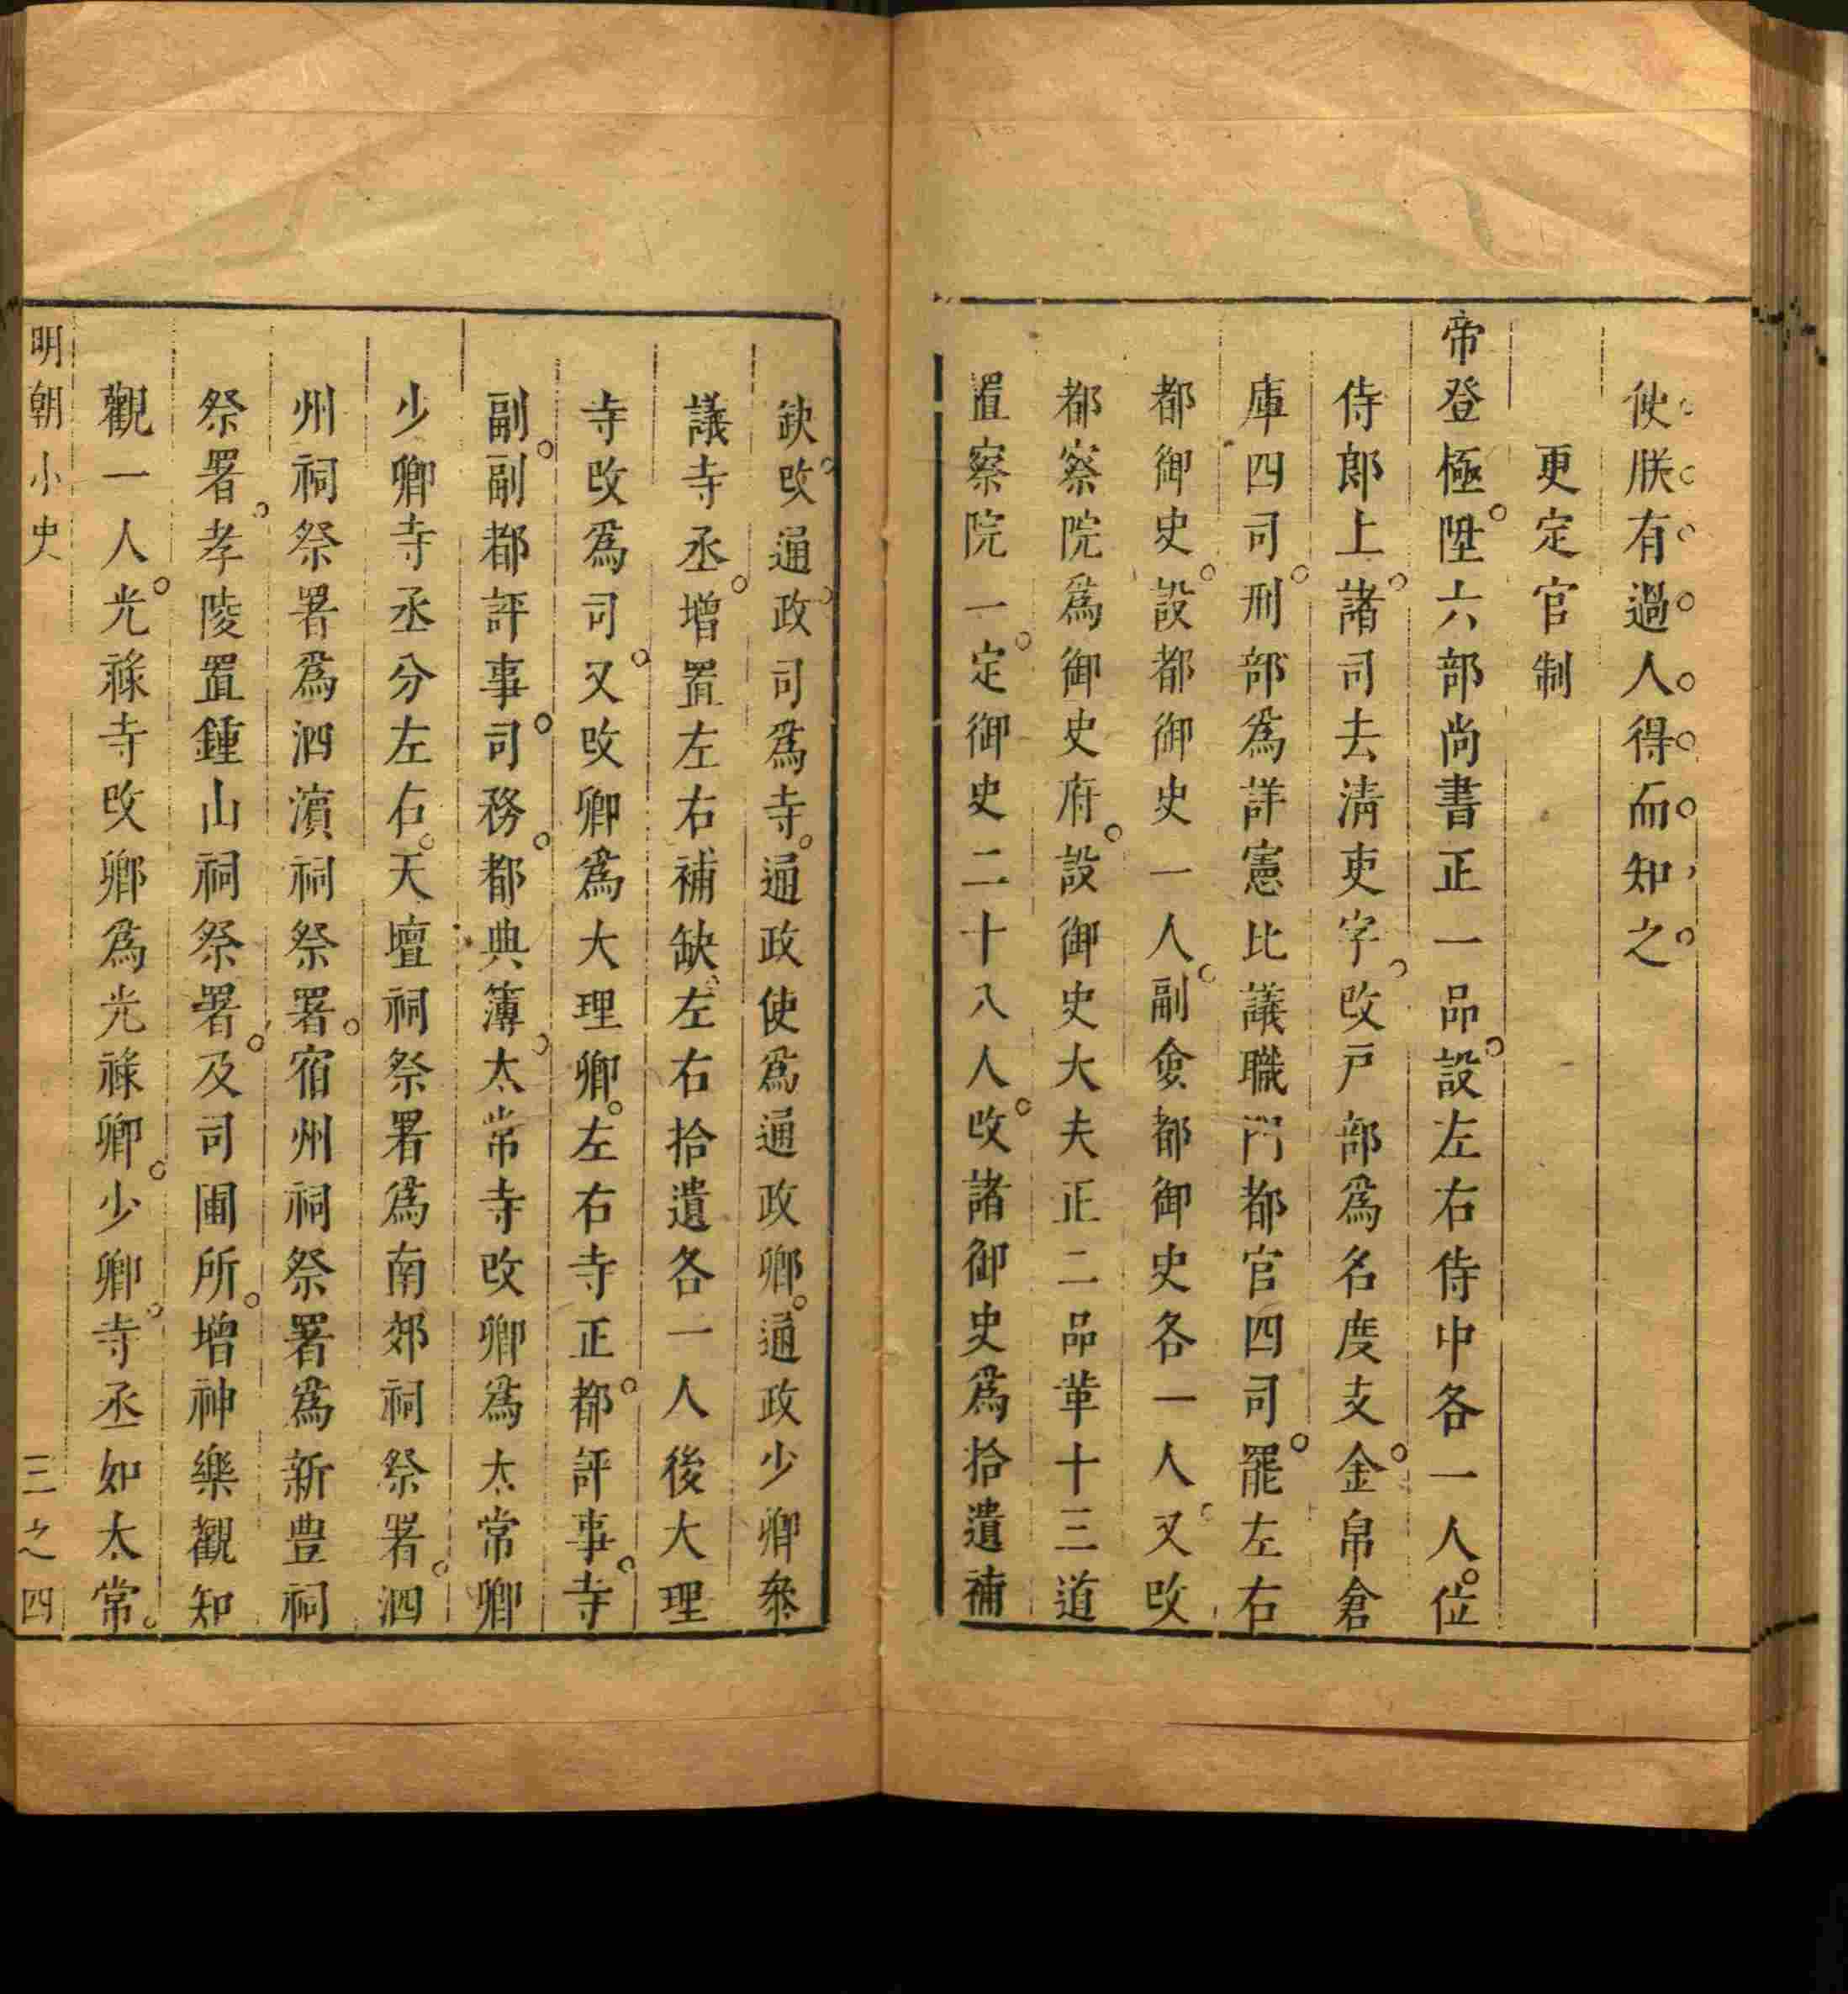 使朕有過人得而知之
更定官制
帝登極陞六部尚書正一品設左右侍中各一人位
侍郎上諸司去清吏字改戸部爲名度支金帛倉
庫四司刑部爲詳憲比議職門都官四司罷左右
都御史設都御史一人副僉都御史各一人又改
都察院爲御史府設御史大夫正二品革十三道
置察院一定御史二十八人改諸御史爲拾遺補
缺改通政司爲寺通政使爲通政卿通政少卿叅
議寺丞增置左右補缺左右拾遺各一人後大理
寺改爲司又改卿爲大理卿左右寺正都評事寺
副副都評事司務都典簿太常寺改卿爲太常卿
少卿寺丞分左右天壇祠祭署爲南郊祠祭署泗
州祠祭署爲泗濱祠祭署宿州祠祭署爲新豊祠
祭署孝陵置鍾山祠祭署及司圃所增神樂觀知
觀一人光祿寺改卿爲光祿卿少卿寺丞如太常
明朝小史
三之四